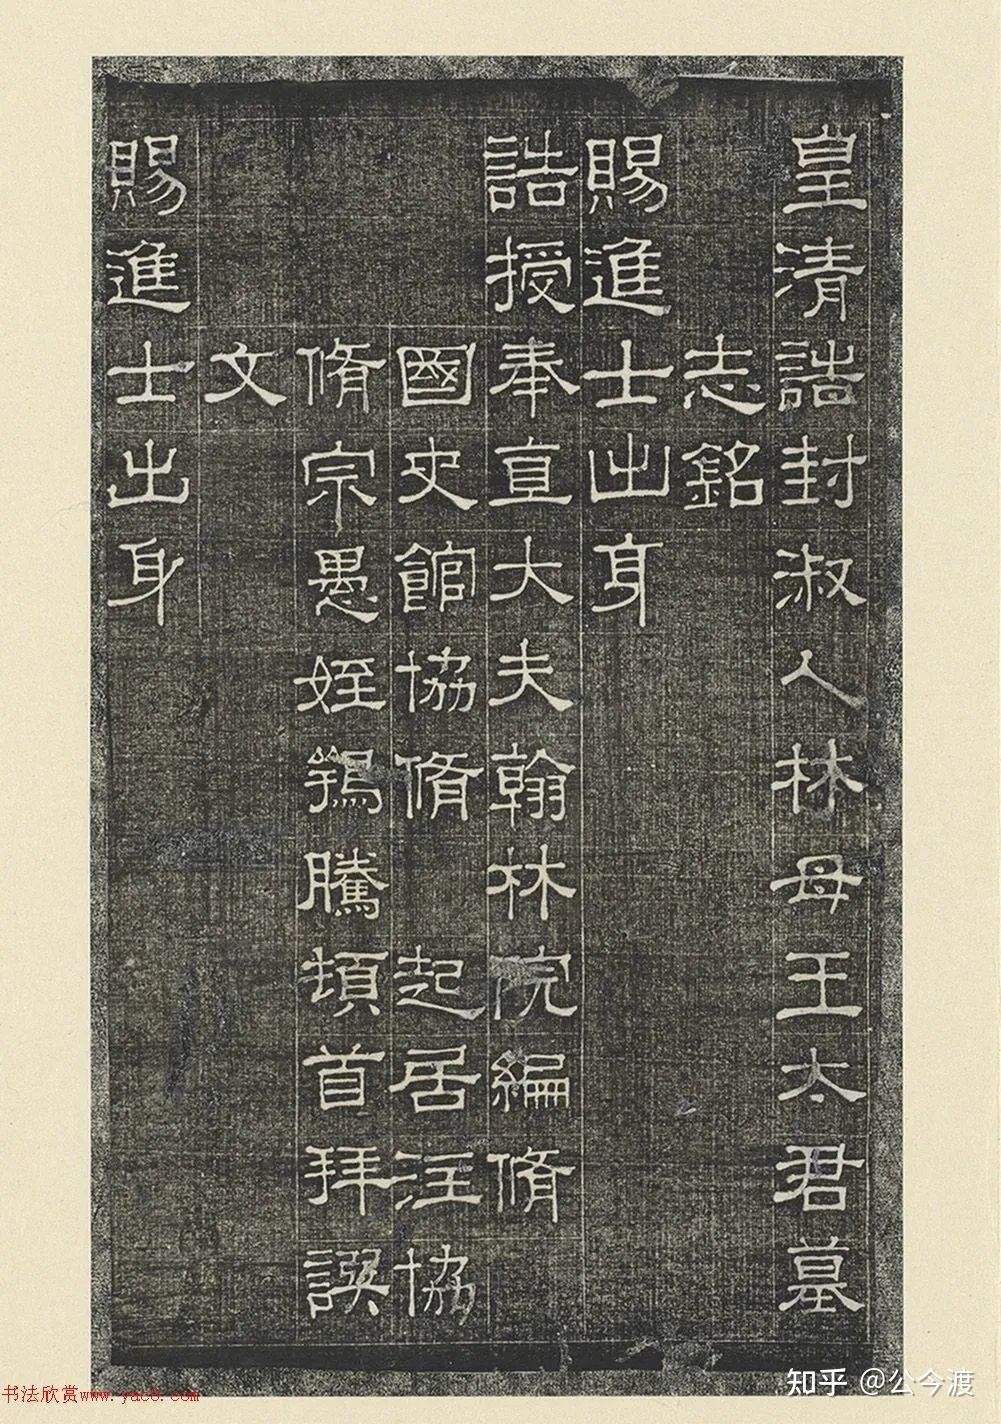 皇清誥封淑人林母王太君墓
志銘
賜進士出身
誥授奉直大夫翰林院編脩
國史館協脩起居注協
脩宗愚姪鴸騰頓首拜譔
文
賜進士出身
书法欣赏www.yac8.com
知乎 @公今渡